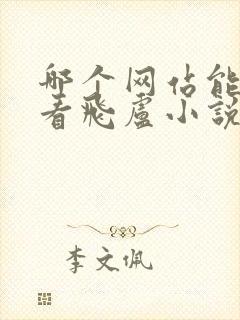 哪个网站能
看飛盧小說
李文佩